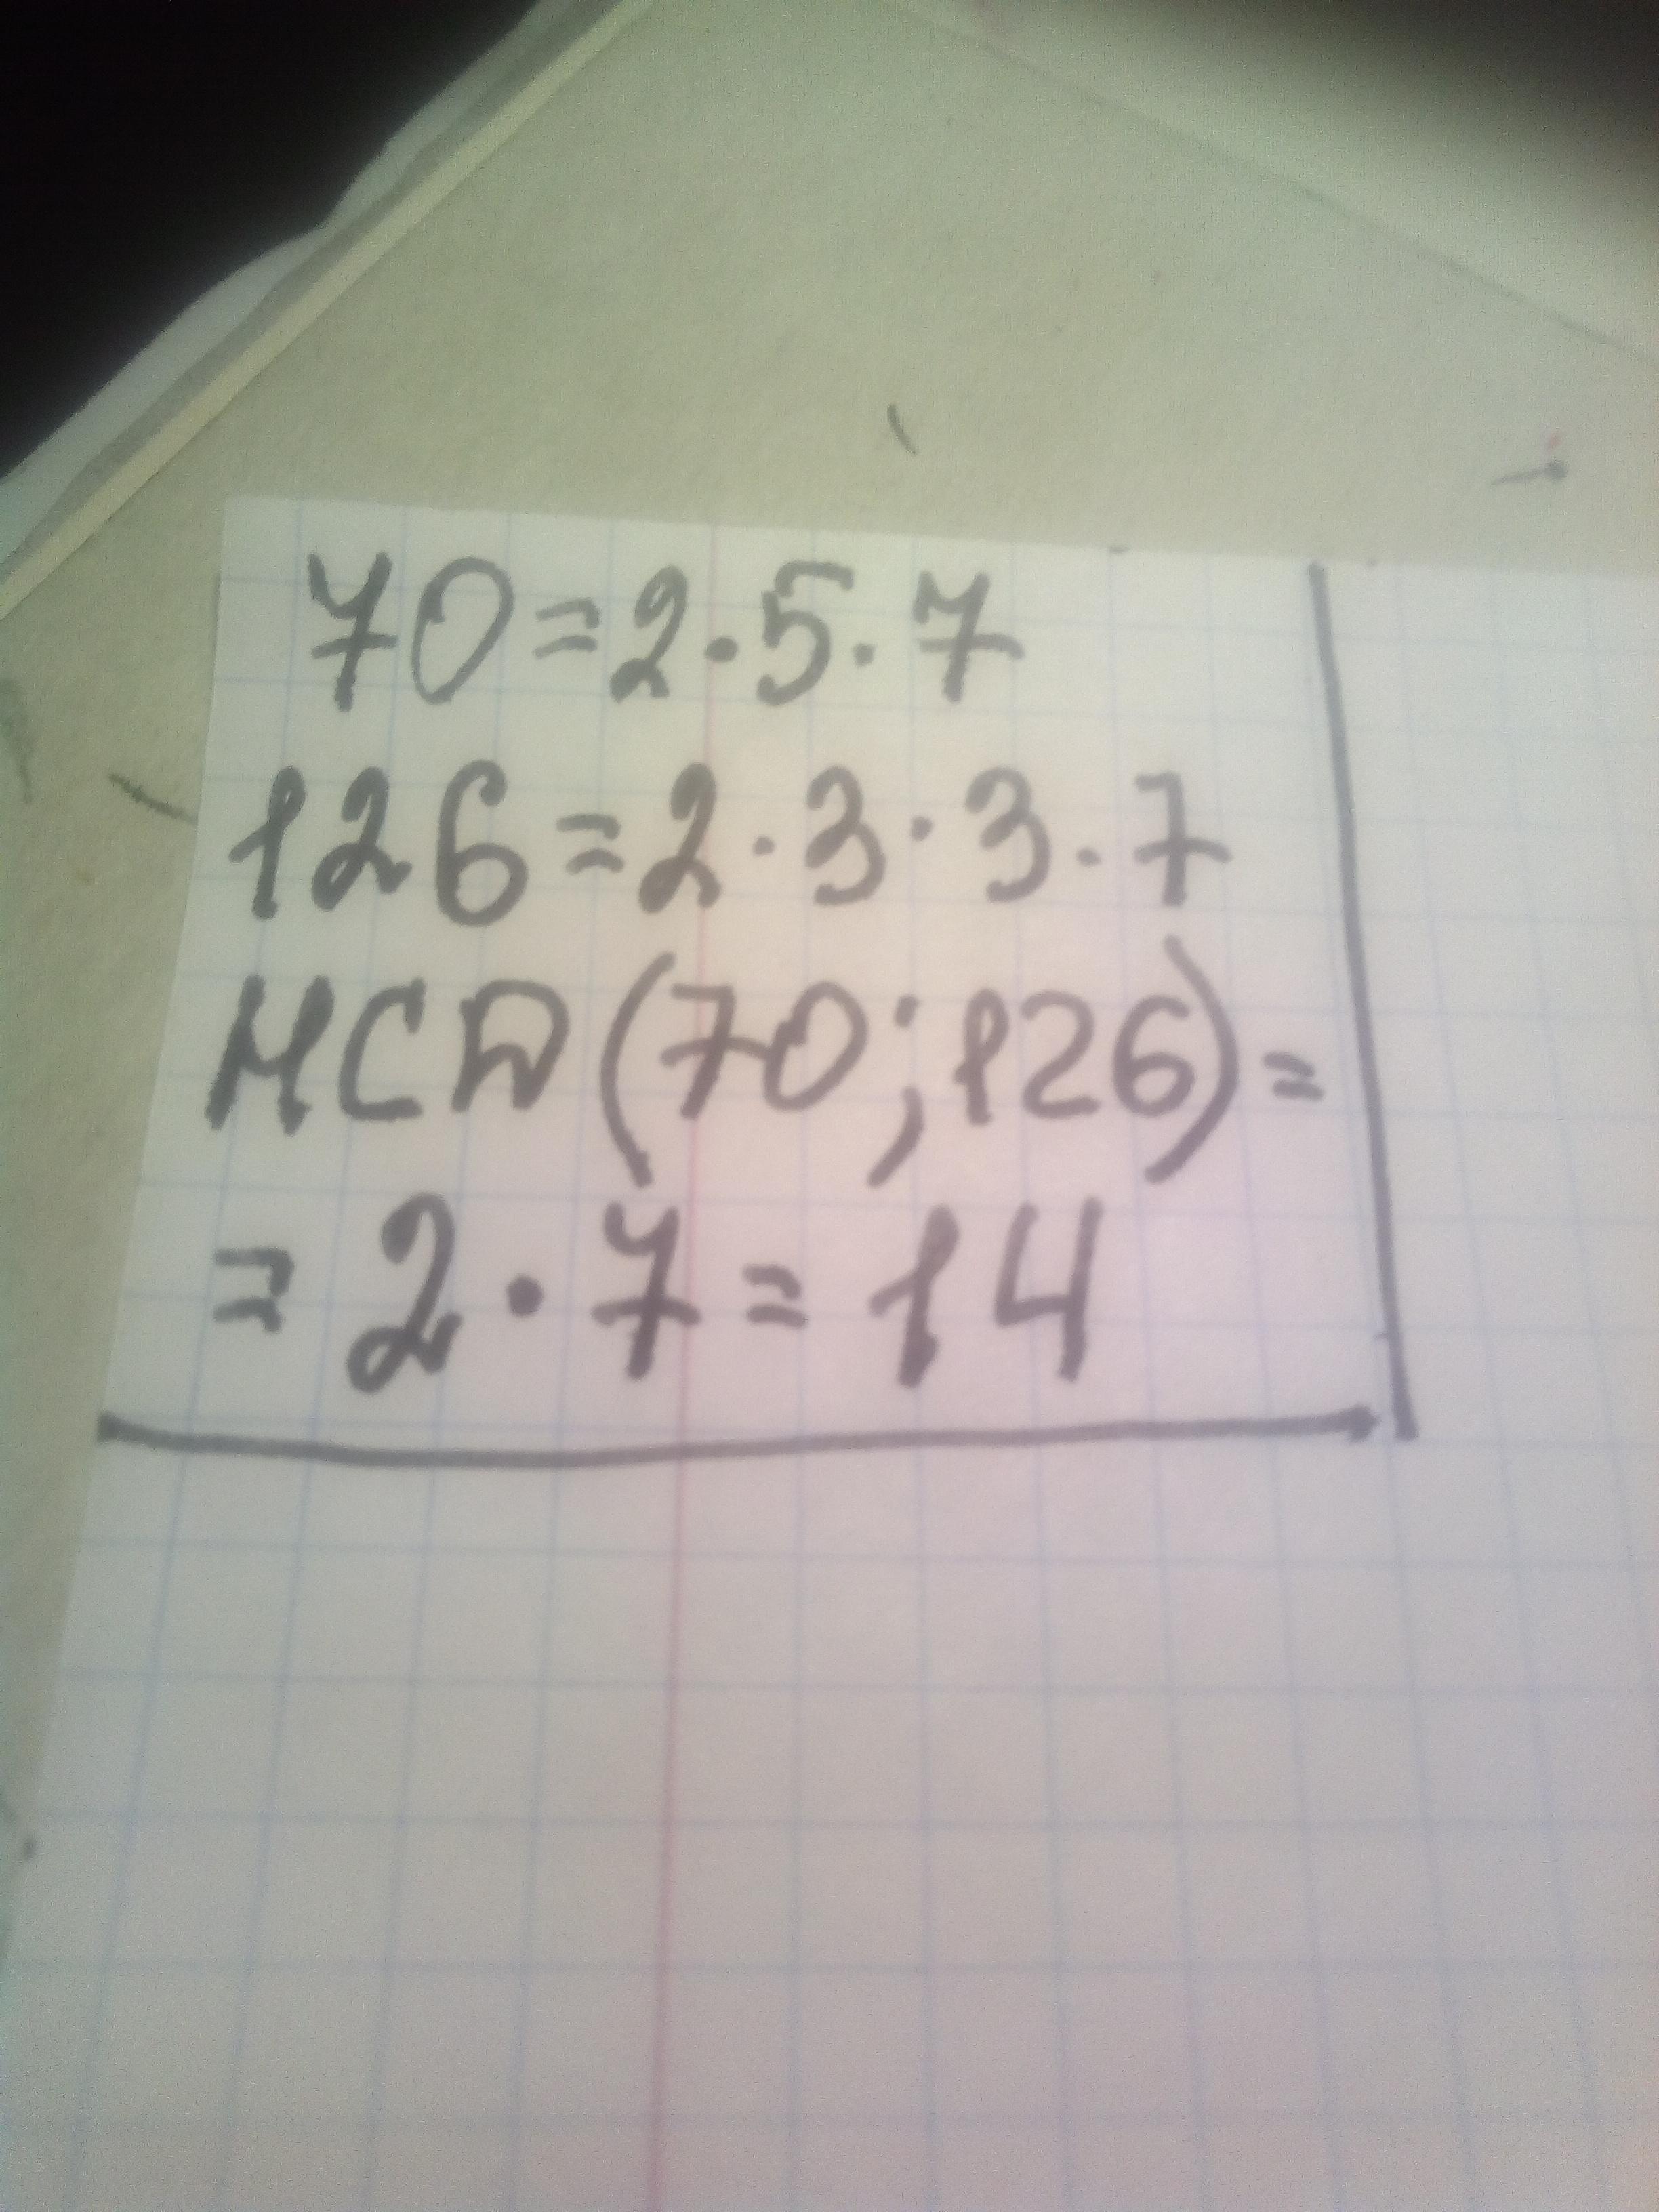 70=2·5·7
126=2·3·3·7
MCD(70;126)=
=2·7=14